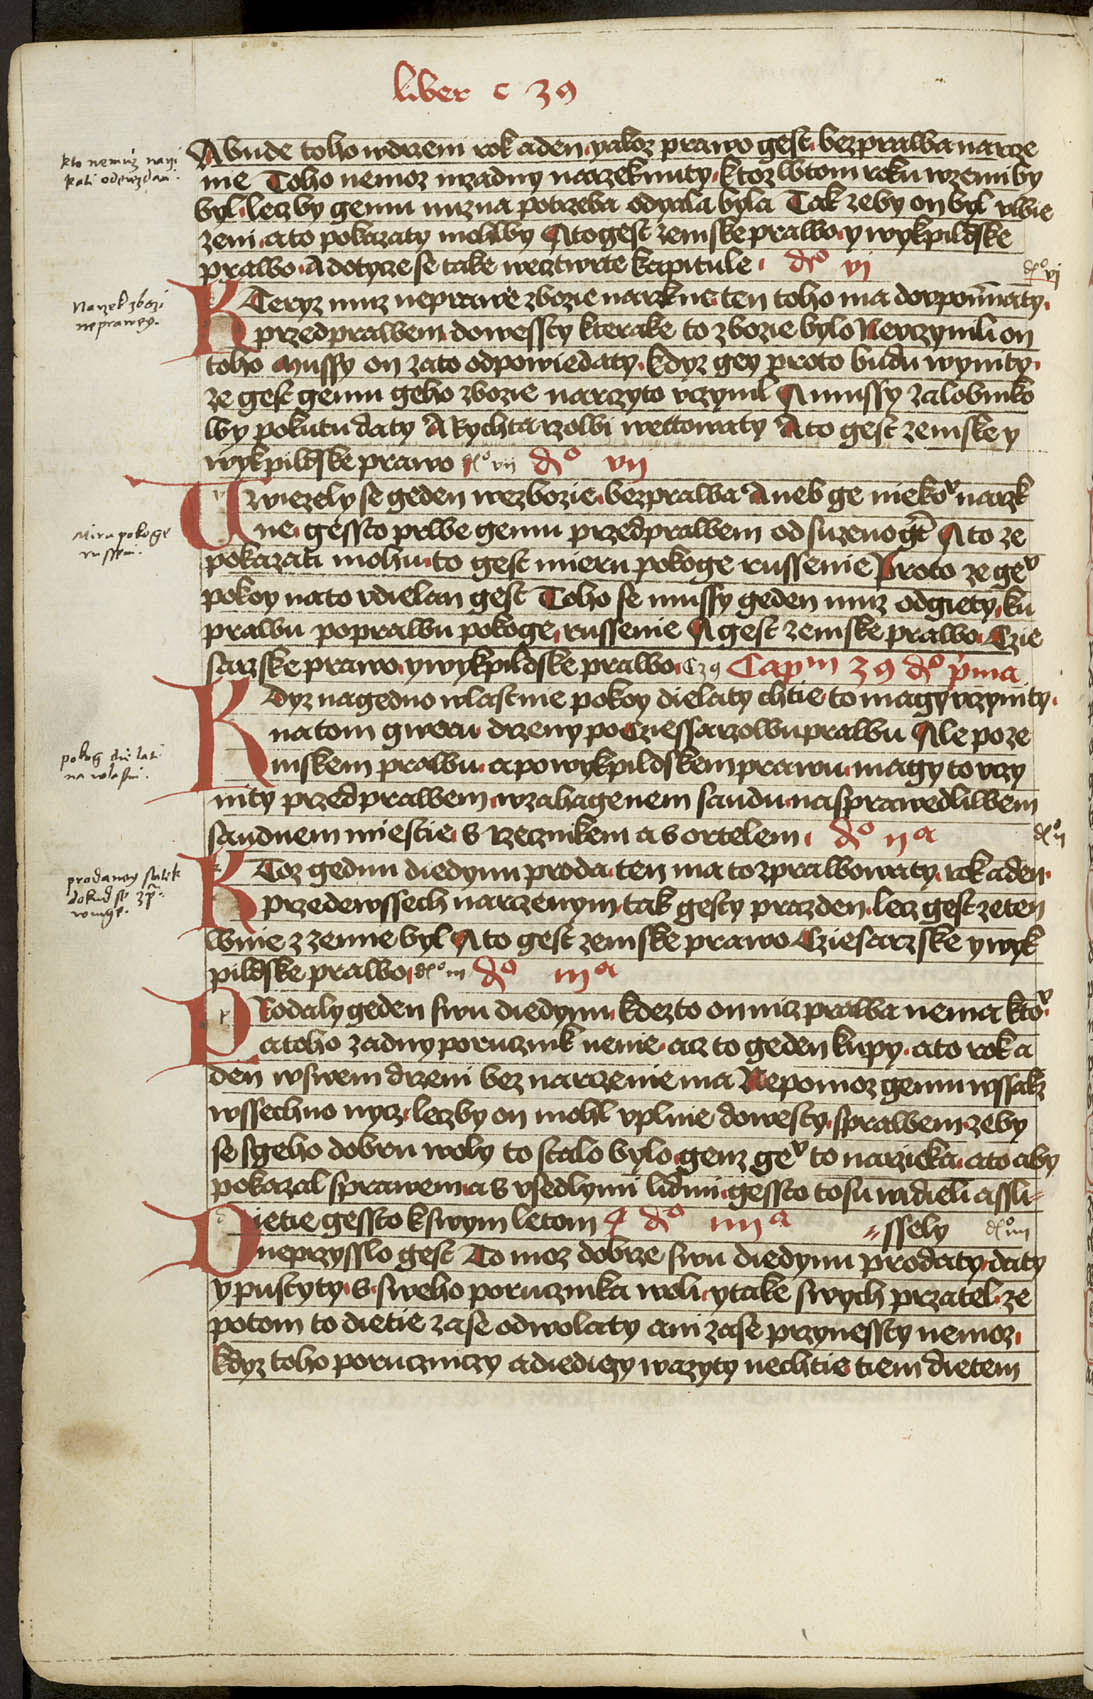 liber c 39
A bude toho wdrzem rok a den yakoz prawo gest bez prawa narze
nie Toho nemoz nizadny narzeknuty ktoz w tom roku w zemi by
byl lecz by gemu nuzna potrzeba odyala byla Tak zeby on byl vwie
zeni a to pokazaty mohlby A to gest zemske prawo y wykpildske
prawo A dotycze se take weczturte kapitule dio vi
kto nemuoz narzi
kati
dio vi
KTeryz muz neprawe zbozie narzkne ten toho ma
przed prawem dowessty kterake to zbozie bylo Neuczynili on
toho Mussy on zato odpowiedaty kdyz gey proto budu wynity
ze gest gemu geho zbozie narczyto vczynil A mussy zalobniko
wy pokutu daty A Rychtarzowi wettowaty A to gest zemske y
wykpildske prawo dio vii dio vii
Narzek zbozi
neprawey
Vwiezely se geden w zbozie bez prawa A neb ge niekov narzk
ne gessto prwe gemu przed prawem odsuzeno gt A to ze
pokazati mohu to gest mieru pokoge russenie Proto ze gev
pokoy na to vdielan gest Toho se mussy geden muz odgiety ku
prawu poprawu pokoge russenie A gest zemske prawo Czie
sarzske prawo y wykpildske prawo Cz9 Capm 39 dio pma
Miru pokoge
russeni
KDyz nagedno wlastnie pokoy dielaty chtie to magy vczynity
na tom gweru drzeny po Cziessarzowu prawu Ale po ze
mskem prawu a po wykpildskem prawu magy to vczy
nity przed prawem w zahagenem saudu na sprawedliwem
saudnem miestie s rzecznikem a s ortelem dio iia
pokog die lati
na wlasni
dio ii
KToz gednu diedynu proda ten ma to zprawowaty rok a den
przede wssech narzenym tak gesty prazden lecz gest ze ten
wnie z zemie byl A to gest zemske prawo Cziesarzske y wyk
pildske prawo dio iii dio iiia
prodaney statek
dokud se zp
wuge
PRodaly geden swu diedynu kdezto on nicz prawa nema ktov
a toho zadny porucznik nenie acz to geden kupy a to rok a
den w swem drzeni bez narczenie ma Nepomoz gemu wssak
wssechno nycz lecz by on mohl vplnie dowesty s prawem zeby
se s geho dobru woly to stalo bylo genz gev to narzieka a to aby
pokazal s prawem a s vsedlymi lidmi gessto to su widieli a sli
ssely
DIetie gessto k swym letom dio iiiia dio iiii
neprzysslo gest To moz dobrze swu diedynu prodaty daty
y pustyty s sweho porucznika woli y take swych przatel ze
potom to dietie zase odwolaty ani zase przynessty nemoz
kdyz toho poruczniczy a diediczy wazyty nechtie tiem dietem